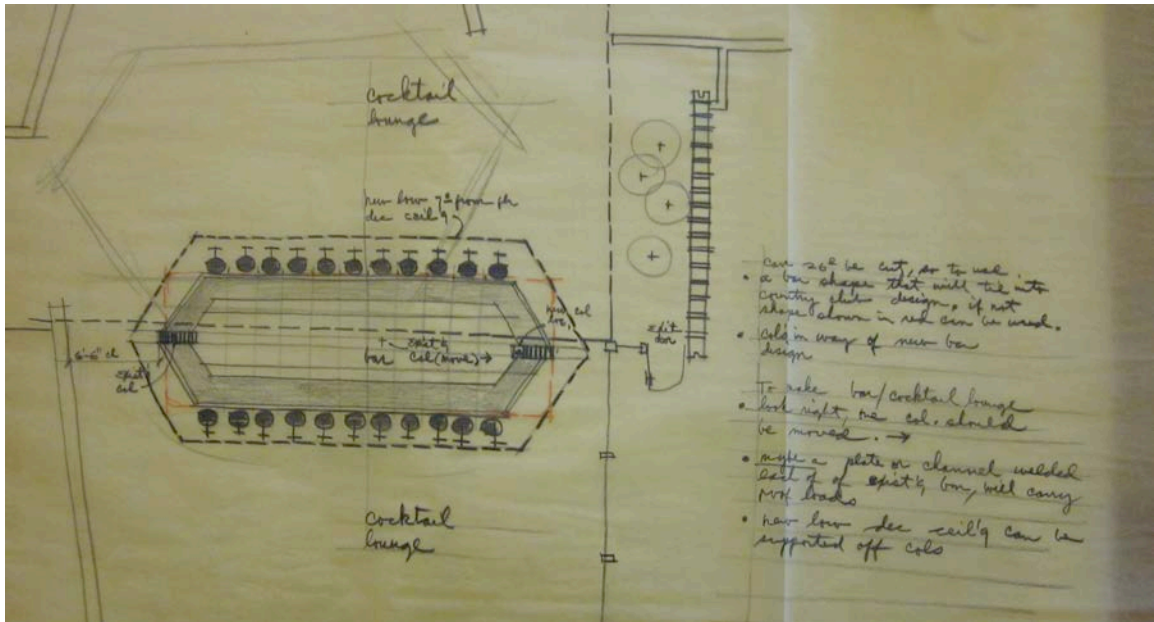 cocktail
lounges
new low 7⁰ from flr
dec ceil'g
new col
loc.
+ exist'g
bar col (move) →
6'-6" cl
exist'g
col
exit
door
cocktail
lounge
can be cut, so to use
• a bar shape that will tie into
country club design, if not
shape shown in red can be used.
• cols in way of new bar
design
To make bar/cocktail lounge
• look right, one col. should
be moved. →
• maybe a plate or channel welded
each of exist'g bar, will carry
roof loads
• new low dec ceil'g can be
supported off cols